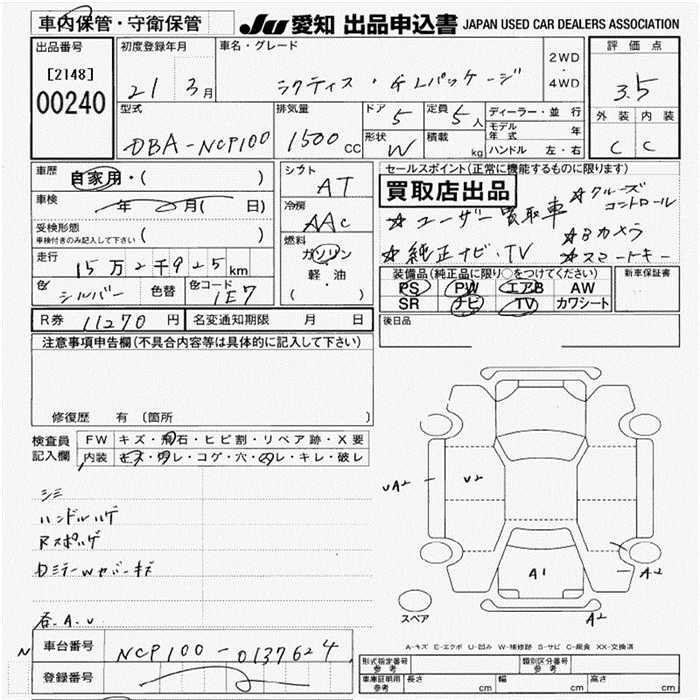 車内保管・守衛保管
JU 愛知 出品申込書 JAPAN USED CAR DEALERS ASSOCIATION
出品番号
[2148]
00240
初度登録年月
21 3月
車名・グレード
ラクティス・GLパッケージ
2WD
・
4WD
評価点
3.5
外装 内装
C C
型式
DBA-NCP100
排気量
1500cc
ドア
5
定員
5人
形状
W
積載
kg
ディーラー・並行
モデル年式 年
ハンドル 左・右
車歴
自家用・( )
車検
年 月( 日)
受検形態
車検付きのみ記入して下さい ( )
走行
15万2千925km
色
シルバー
色替
色コード
1E7
シフト
AT
冷房
AAC
燃料
ガソリン
軽・油
( ・ )
セールスポイント(正常に機能するものに限ります)
買取店出品
☆クルーズコントロール
☆ユーザー買取車
☆Bカメラ
☆純正ナビ・TV
☆スマートキー
装備品(純正品に限り○をつけてください)
PS PW エアB AW
SR ナビ TV カワシート
新車保証書
後日品
R券 11270円
名変通知期限 月 日
注意事項申告欄(不具合内容等は具体的に記入して下さい)
修復歴 有 〔箇所
検査員記入欄
FW キズ・飛石・ヒビ割・リペア跡・X要
内装 キズ・汚レ・コゲ・穴・凹レ・キレ・破レ
シミ
ハンドルハゲ
Rスポハゲ
DミラーWカバーキズ
各.A.U
UA2
U2
A1
A2
A2
スペア
A-キズ E-エクボ U-凹み W-補修跡 S-サビ C-腐食 XX-交換済
車台番号
NCP100-0137624
登録番号
形式指定番号 参考
類別区分番号 参考
車庫証明用 参考
長さ cm
幅 cm
高さ cm